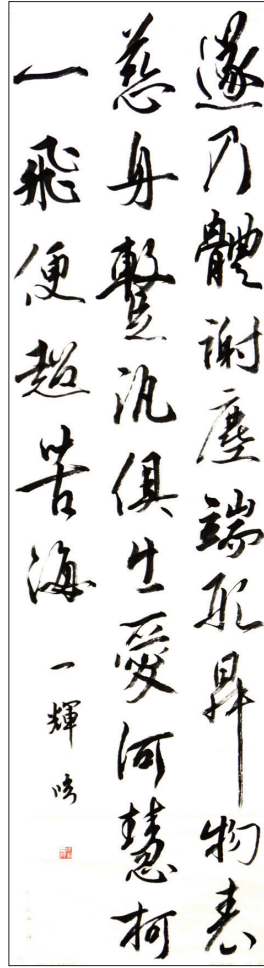 遂乃體謝塵端形昇物表
慈舟蹔汎俱生愛河慧柯
一飛便超苦海
一輝